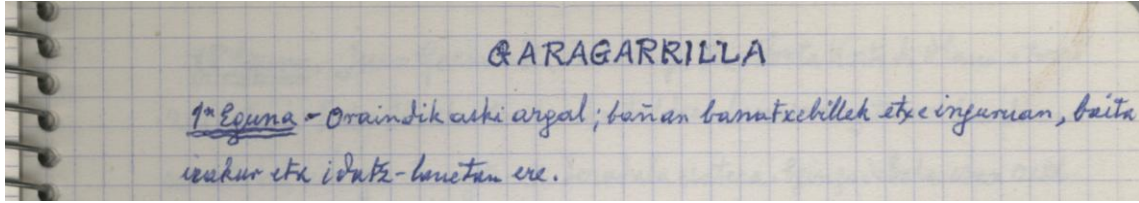 GARAGARRILLA
1n Eguna - Oraindik aski argal; bañan banutxebillek etxe inguruan, baita
irakur eta idatz-lanetan ere.